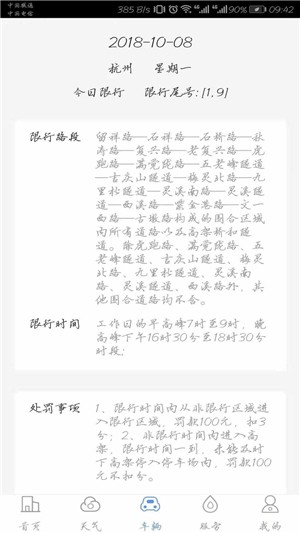 中国联通
中国电信
385 B/s 4G 4G 90% 09:42
2018-10-08
杭州 星期一
今日限行 限行尾号:[1,9]
限行路段
留祥路—石祥路—石桥路—秋
涛路—复兴路—老复兴路—虎
跑路—满觉陇路—五老峰隧道
—吉庆山隧道—梅灵北路—九
里松隧道—灵溪南路—灵溪隧
道—西溪路—紫金港路—文一
西路—古墩路构成的围合区域
内所有道路以及高架桥和隧
道。除虎跑路、满觉陇路、五
老峰隧道、吉庆山隧道、梅灵
北路、九里松隧道、灵溪南
路、灵溪隧道、西溪路外，其
他围合道路均不含。
限行时间
工作日的早高峰7时至9时，晚
高峰下午16时30分至18时30分
时段;
处罚事项
1、限行时间内从非限行区域进
入限行区域，罚款100元，扣3
分；2、非限行时间内进入高
架，限行时间一到，未能及时
下高架停入停车场内，罚款100
元不扣分。
首页 天气 车辆 服务 我的